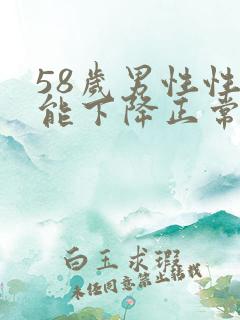 58歲男性性
能下降正常
白玉求瑕
未经同意禁止转载